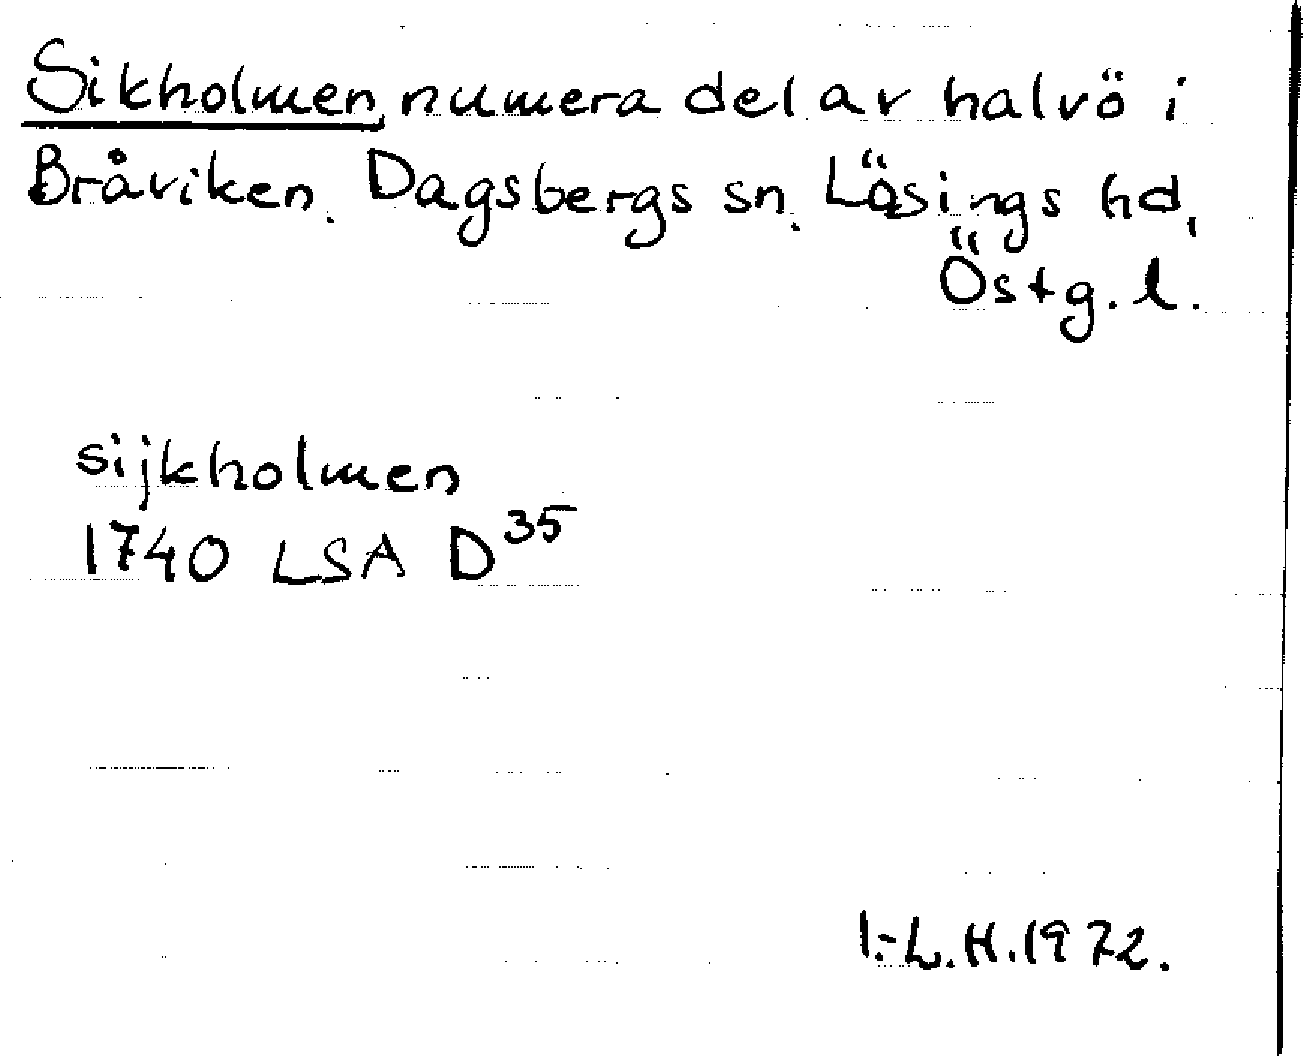 Sikholmen, numera del av halvö i
Bråviken. Dagsbergs sn. Lösings hd,
Östg. l.
sijkholmen
1740 LSA D³⁵
I.-L.H. 1972.